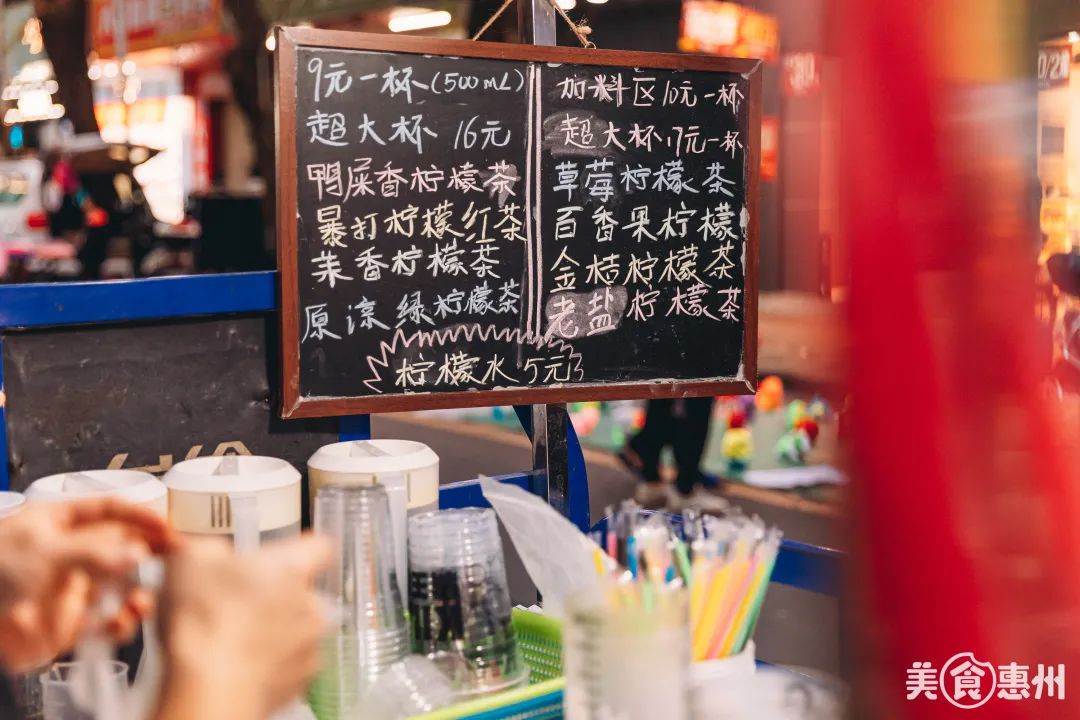 9元一杯(500mL)
超大杯 16元
鸭屎香柠檬茶
暴打柠檬红茶
茉香柠檬茶
原凉绿柠檬茶
加料区10元一杯
超大杯17元一杯
草莓柠檬茶
百香果柠檬
金桔柠檬茶
老盐柠檬茶
柠檬水5元
美食惠州